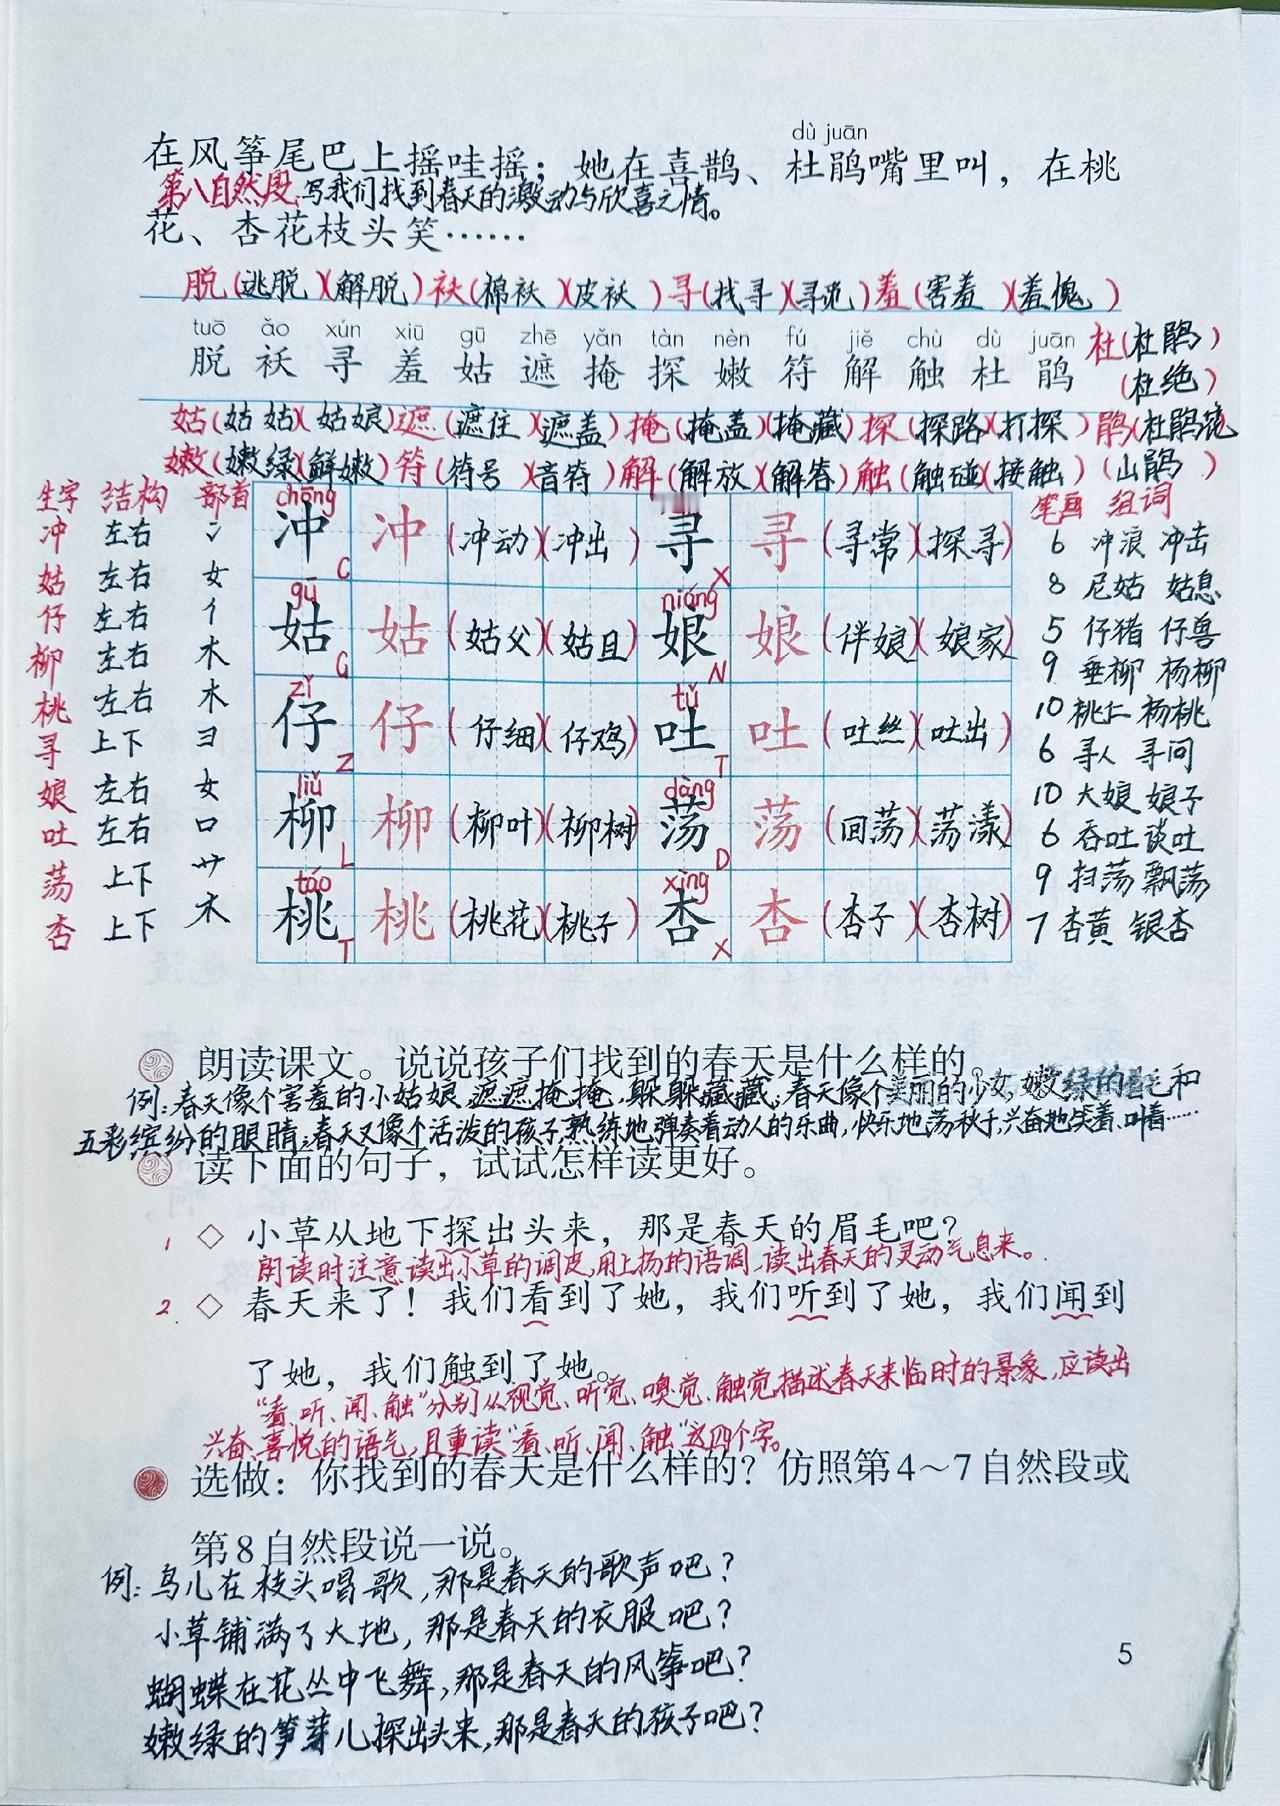 dù juān
在风筝尾巴上摇哇摇；她在喜鹊、杜鹃嘴里叫，在桃
第八自然段:写我们找到春天的激动与欣喜之情。
花、杏花枝头笑……
脱(逃脱)(解脱)袄(棉袄)(皮袄)寻(找寻)(寻觅)羞(害羞)(羞愧)
tuō ǎo xún xiū gū zhē yǎn tàn nèn fú jiě chù dù juān
脱 袄 寻 羞 姑 遮 掩 探 嫩 符 解 触 杜 鹃 杜(杜鹃)
(杜绝)
姑(姑姑)(姑娘)遮(遮住)(遮盖)掩(掩盖)(掩藏)探(探路)(打探)鹃(杜鹃花)
嫩(嫩绿)(鲜嫩)符(符号)(音符)解(解放)(解答)触(触碰)(接触)(山鹃)
生字 结构 部首 chōng 笔画 组词
冲 左右 冫 冲 冲 (冲动)(冲出) C 寻 寻 (寻常)(探寻) X 6 冲浪 冲击
gū niáng
姑 左右 女 姑 姑 (姑父)(姑且) G 娘 娘 (伴娘)(娘家) N 8 尼姑 姑息
zǐ tǔ
仔 左右 亻 仔 仔 (仔细)(仔鸡) Z 吐 吐 (吐丝)(吐出) T 5 仔猪 仔兽
liǔ dàng
柳 左右 木 柳 柳 (柳叶)(柳树) L 荡 荡 (回荡)(荡漾) D 9 垂柳 杨柳
táo xìng
桃 左右 木 桃 桃 (桃花)(桃子) T 杏 杏 (杏子)(杏树) X 10 桃仁 杨桃
寻 上下 彐 6 寻人 寻问
娘 左右 女 10 大娘 娘子
吐 左右 口 6 吞吐 谈吐
荡 上下 艹 9 扫荡 飘荡
杏 上下 木 7 杏黄 银杏
朗读课文。说说孩子们找到的春天是什么样的。
例:春天像个害羞的小姑娘,遮遮掩掩,躲躲藏藏;春天像个美丽的少女,嫩绿的眉毛和
五彩缤纷的眼睛;春天又像个活泼的孩子,熟练地弹奏着动人的乐曲,快乐地荡秋千,兴奋地笑着、叫着……
读下面的句子，试试怎样读更好。
1 ◇ 小草从地下探出头来，那是春天的眉毛吧？
朗读时注意读出小草的调皮,用上扬的语调,读出春天的灵动气息来。
2. ◇ 春天来了！我们看到了她，我们听到了她，我们闻到
了她，我们触到了她。
“看、听、闻、触”分别从视觉、听觉、嗅觉、触觉描述春天来临时的景象,应读出
兴奋、喜悦的语气,且重读“看、听、闻、触”这四个字。
选做：你找到的春天是什么样的？仿照第4～7自然段或
第8自然段说一说。
例:鸟儿在枝头唱歌,那是春天的歌声吧?
小草铺满了大地,那是春天的衣服吧?
蝴蝶在花丛中飞舞,那是春天的风筝吧?
嫩绿的笋芽儿探出头来,那是春天的孩子吧?
5